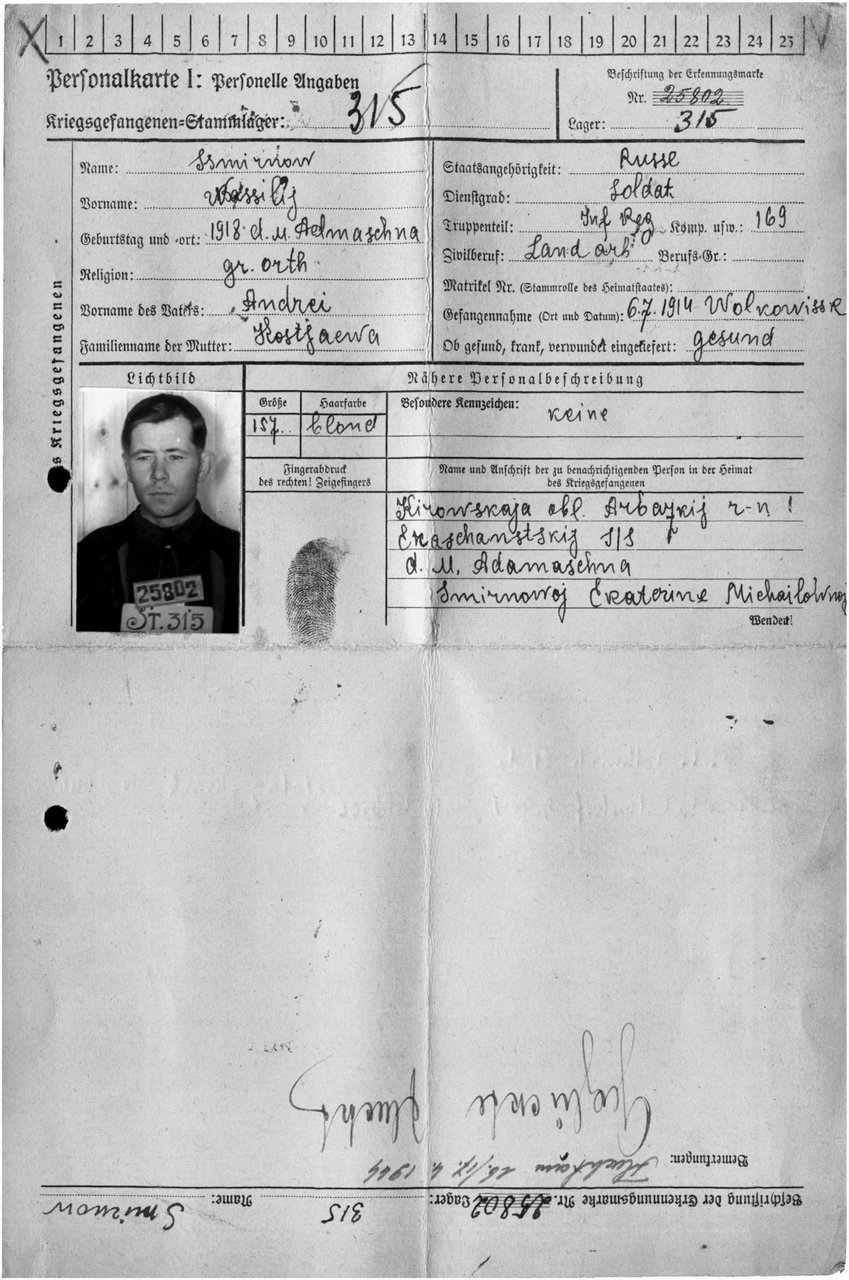 X 1 2 3 4 5 6 7 8 9 10 11 12 13 14 15 16 17 18 19 20 21 22 23 24 25
Personalkarte I: Personelle Angaben
Kriegsgefangenen-Stammlager: 315
Beschriftung der Erkennungsmarke
Nr. 25802
Lager: 315
Name: Ssmirnow
Vorname: Wassilij
Geburtstag und -ort: 1918 d. u. Admaschna
Religion: gr. orth
Vorname des Vaters: Andrei
Familienname der Mutter: Kostjaewa
Staatsangehörigkeit: Russe
Dienstgrad: Soldat
Truppenteil: Inf Reg Komp. usw.: 169
Zivilberuf: Landarb Berufs-Gr.:
Matrikel Nr. (Stammrolle des Heimatstaates):
Gefangennahme (Ort und Datum): 6.7.1914 Wolkowissk
Ob gesund, krank, verwundet eingeliefert: gesund
s Kriegsgefangenen
Lichtbild
25802
ST. 315
Nähere Personalbeschreibung
Größe Haarfarbe Besondere Kennzeichen: keine
157. blond
Fingerabdruck
des rechten! Zeigefingers
Name und Anschrift der zu benachrichtigenden Person in der Heimat
des Kriegsgefangenen
Kirowskaja obl. Arbazkij r-n!
Ekaschanstskij S/S
d. u. Adamaschna
Smirnowoj Ekaterine Michailownoj
Wenden!
Beschriftung der Erkennungsmarke Nr. 25802 Lager: 315 Name: Smirnow
Bemerkungen: 16./17. 4. 1944
Geglückte Flucht